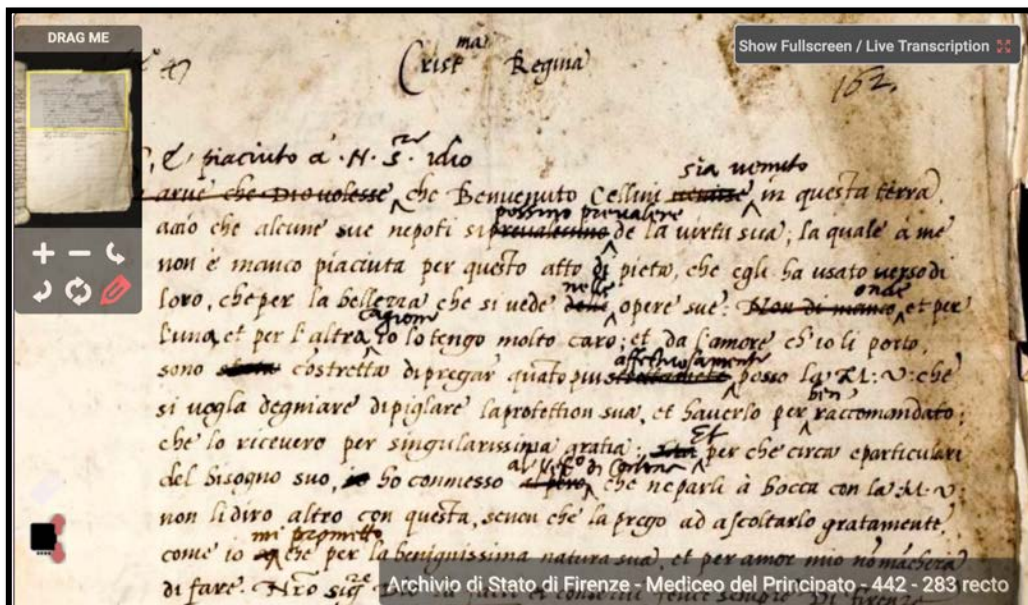 DRAG ME
Show Fullscreen / Live Transcription
Crist.ma Regina
162.
È piaciuto à .N. S.re idio
che Dio volesse, che Benvenuto Cellini sia venuto in questa terra,
acciò che alcune sue nepoti si possino prevalere de la virtu sua; la quale à me
non è manco piaciuta per questo atto di pieta, che egli ha usato verso di
loro, che per la bellezza che si vede nelle opere sue: Non di manco, onde et per
l'una, et per l'altra cagione io lo tengo molto caro; et da l'amore ch'io li porto,
sono costretta di pregar quãto piu affettuosamente posso la .M: V: che
si vogla degniare di piglare la protettion sua, et haverlo per bẽn raccomandato;
che lo ricevero per singularissima gratia; Et per che circa e particulari
del bisogno suo, ho conmesso al di che ne parli à bocca con la .M. V:
non li diro altro con questa, senon che la prego ad ascoltarlo gratamente,
come io mi prometto che per la benignissima natura sua, et per amor mio nõ mãcherà
di fare. Nrõ sig.re Dio
Archivio di Stato di Firenze - Mediceo del Principato - 442 - 283 recto